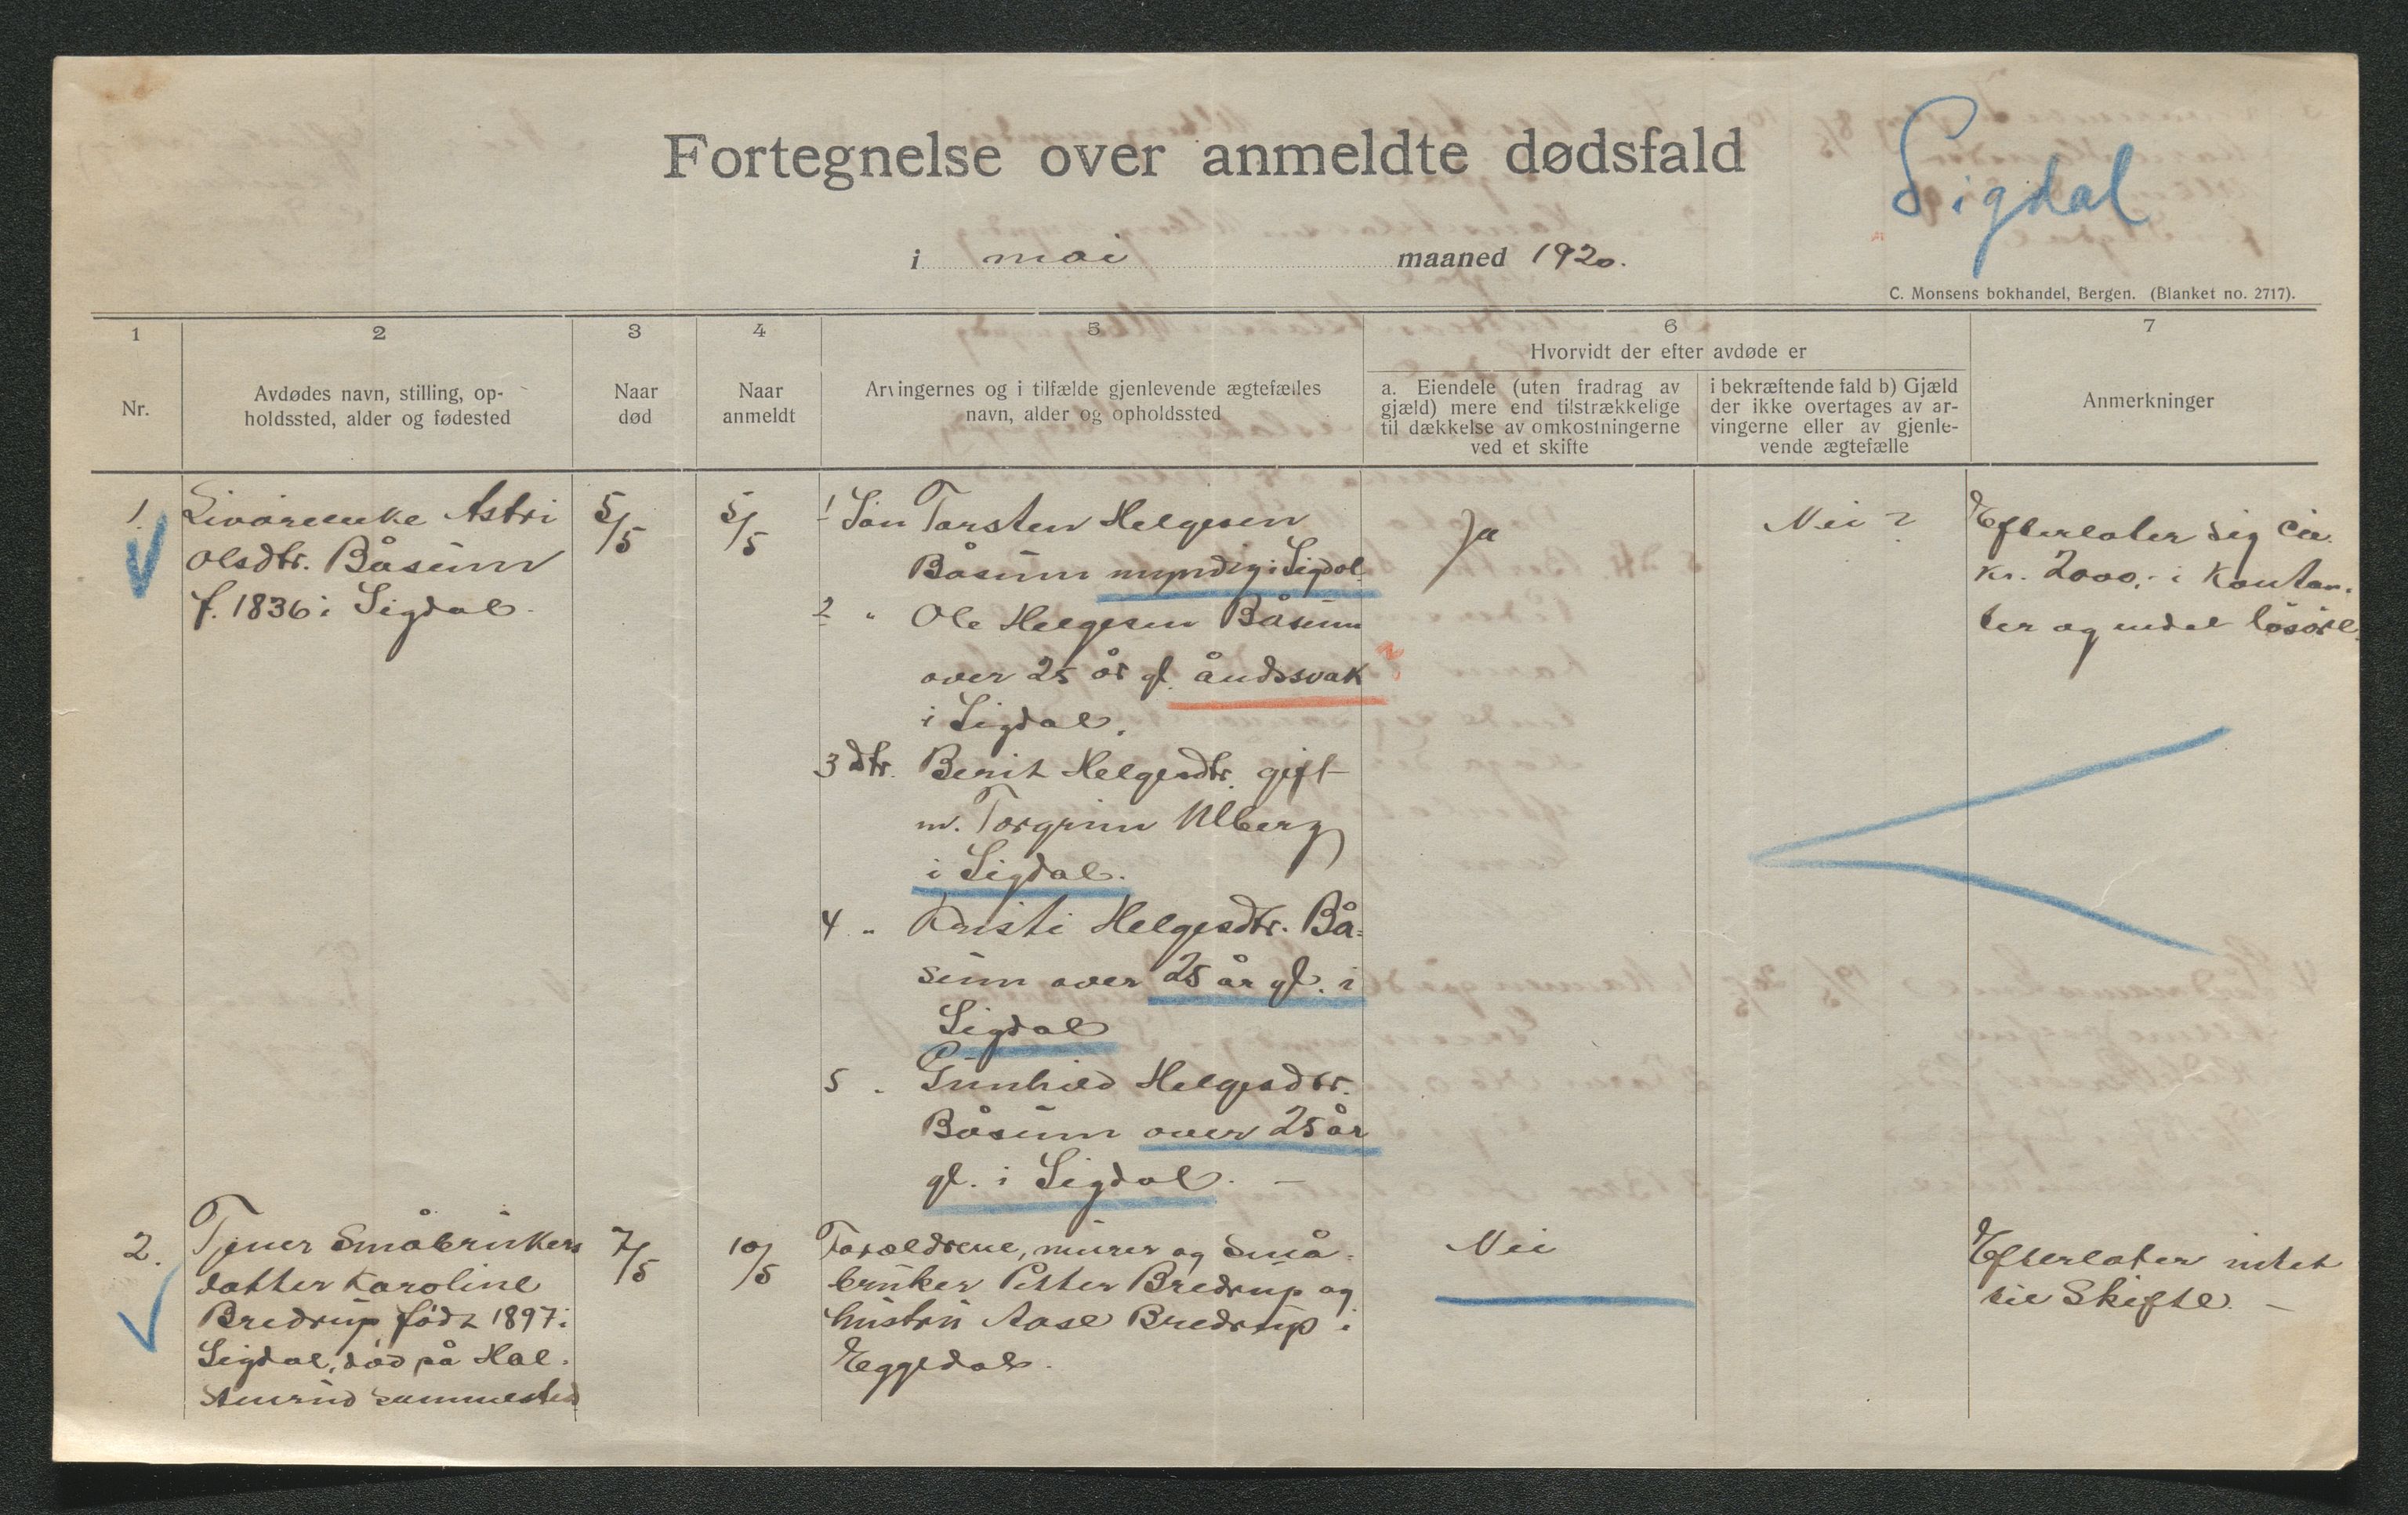 Fortegnelse over anmeldte dødsfald
Sigdal
i mai maaned 1920.
C. Monsens bokhandel, Bergen. (Blanket no. 2717).
1
2
3
4
5
6
7
Nr.
Avdødes navn, stilling, op-
holdssted, alder og fødested
Naar
død
Naar
anmeldt
Arvingernes og i tilfælde gjenlevende ægtefælles
navn, alder og opholdssted
Hvorvidt der efter avdøde er
a. Eiendele (uten fradrag av
gjæld) mere end tilstrækkelige
til dækkelse av omkostningerne
ved et skifte
i bekræftende fald b) Gjæld
der ikke overtages av ar-
vingerne eller av gjenle-
vende ægtefælle
Anmerkninger
1.
Livøreenke Astri
Olsdtr. Båsum
f. 1836 i Sigdal.
5/5
5/5
1 Søn Torsten Helgesen
Båsum myndig i Sigdal.
2 " Ole Helgesen Båsum
over 25 år gl. åndssvak
i Sigdal.
3 dtr. Berit Helgesdtr. gift
m. Torgrim Ulberg
i Sigdal.
4 " Kristi Helgesdtr. Bå-
sum over 25 år gl. i
Sigdal
5 " Gunhild Helgesdtr.
Båsum over 25 år
gl. i Sigdal. –
Ja
Nei ?
Efterlater sig ca.
kr. 2000,- i kontan-
ter og endel løsøre.
2.
Tjener Småbrukers
datter Karoline
Bredrup, født 1897 i
Sigdal, død på Hal-
stenrud sammested
7/5
10/5
Forældrene, murer og små-
bruker Petter Bredrup og
hustru Aase Bredrup i
Eggedal.
Nei
Efterlater intet
til Skifte. –